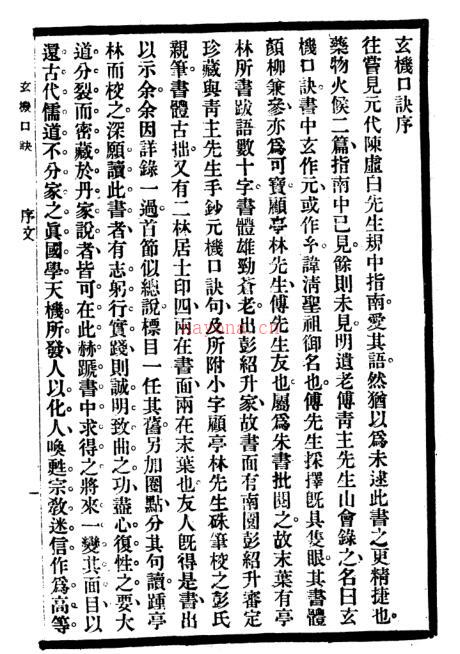 玄機口訣序
往嘗見元代陳虛白先生規中指南愛其語然猶以爲未逮此書之更精捷也。
藥物火候二篇指南中已見餘則未見明遺老傅靑主先生山會錄之名曰玄
機口訣書中玄作元或作𤣥諱淸聖祖御名也傅先生採擇旣具隻眼其書體
顏柳兼參亦爲可寶顧亭林先生傅先生友也屬爲朱書批閱之故末葉有亭
林所書跋語數十字書體雄勁蒼老山彭紹升家故書面有南園彭紹升審定
珍藏與靑主先生手鈔元機口訣句及所附小字顧亭林先生硃筆校之彭氏
親筆書體古拙又有二林居士印四兩在書面兩在末葉也友人旣得是書出
以示余余因詳錄一過首節似總說標目一任其舊另加圈點分其句讀踵亭
林而校之深願讀此書者有志躬行實踐則誠明致曲之功盡心復性之要大
道分裂而密藏於丹家說者皆可在此赫蹏書中求得之將來一變其面目以
還古代儒道不分家之眞國學天機所發人以化人喚甦宗敎迷信作爲高等
玄機口訣 序文 一
nayona.cn